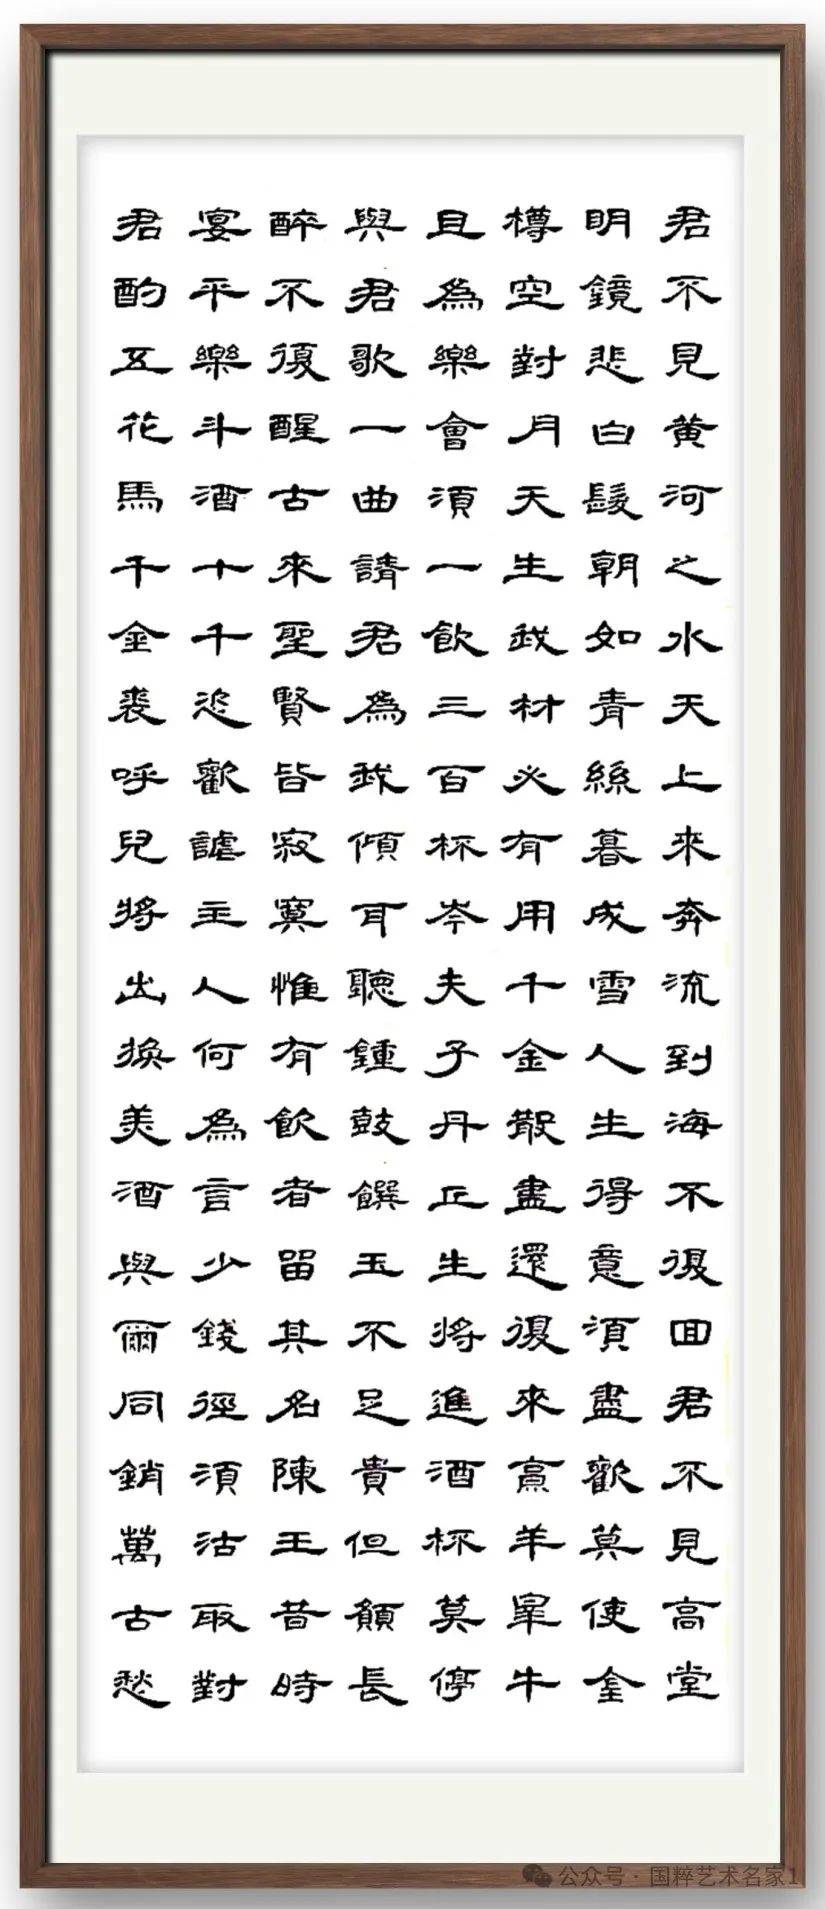 君不見黄河之水天上來奔流到海不復回君不見高堂
明鏡悲白髮朝如青絲暮成雪人生得意須盡歡莫使金
樽空對月天生我材必有用千金散盡還復來烹羊宰牛
且為樂會須一飲三百杯岑夫子丹丘生將進酒杯莫停
與君歌一曲請君為我傾耳聽鍾鼓饌玉不足貴但願長
醉不復醒古來聖賢皆寂寞惟有飲者留其名陳王昔時
宴平樂斗酒十千恣歡謔主人何為言少錢徑須沽取對
君酌五花馬千金裘呼兒將出換美酒與爾同銷萬古愁
公众号 · 国粹艺术名家1